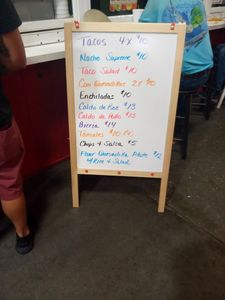 Tacos 4x $10
Nacho Supreme $10
Taco Salad $10
Con Quesadillas 2x $10
Enchiladas $10
Caldo de Res $13
Caldo de Pollo $13
Birria $14
Tamales $10 (4)
Chips & Salsa $5
Flour Quesadilla Plate $12
w/Rice & Salad